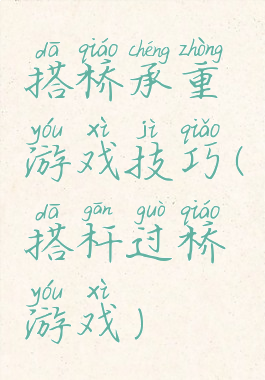 dā qiáo chéng zhòng
搭桥承重
yóu xì jì qiǎo
游戏技巧(
dā gān guò qiáo
搭杆过桥
yóu xì
游戏)